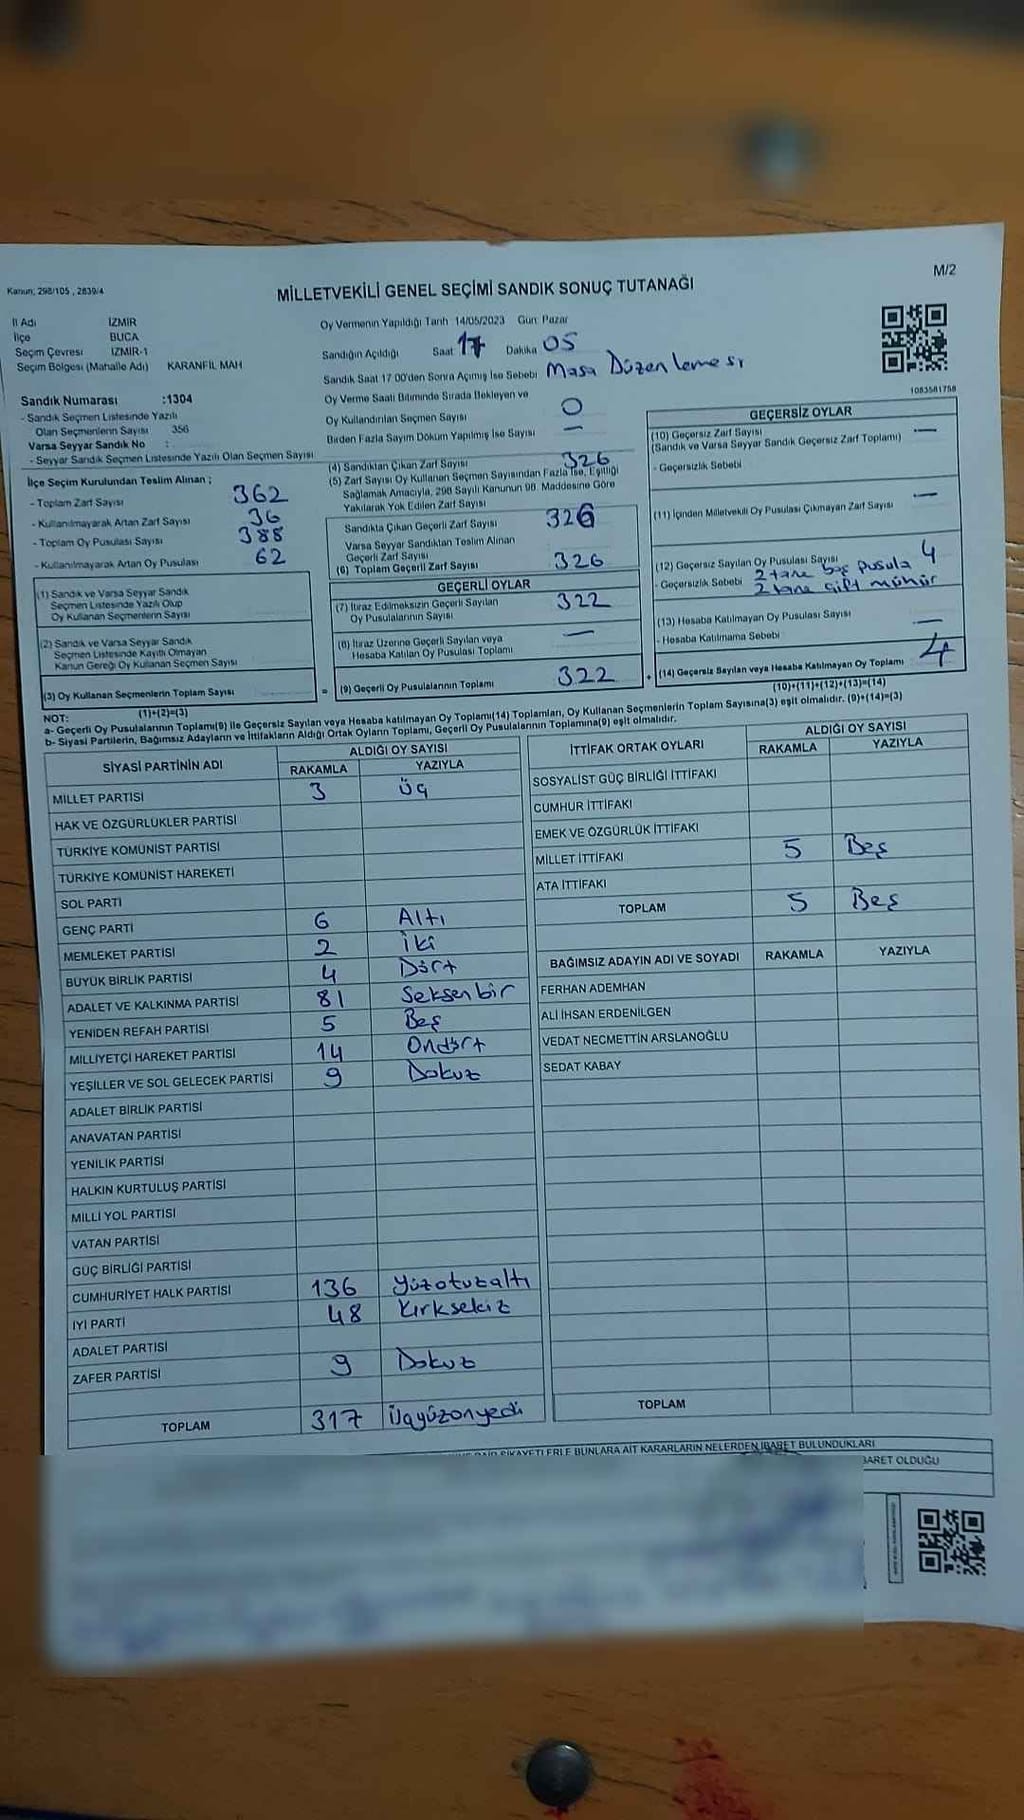 M/2
Kanun; 298/105 , 2839/4
MİLLETVEKİLİ GENEL SEÇİMİ SANDIK SONUÇ TUTANAĞI
İl Adı İZMİR
İlçe BUCA
Seçim Çevresi İZMİR-1
Seçim Bölgesi (Mahalle Adı) KARANFİL MAH
Sandık Numarası :1304
- Sandık Seçmen Listesinde Yazılı
Olan Seçmenlerin Sayısı 356
Varsa Seyyar Sandık No :
- Seyyar Sandık Seçmen Listesinde Yazılı Olan Seçmen Sayısı
İlçe Seçim Kurulundan Teslim Alınan ;
- Toplam Zarf Sayısı 362
- Kullanılmayarak Artan Zarf Sayısı 36
- Toplam Oy Pusulası Sayısı 388
- Kullanılmayarak Artan Oy Pusulası 62
(1) Sandık ve Varsa Seyyar Sandık
Seçmen Listesinde Yazılı Olup
Oy Kullanan Seçmenlerin Sayısı
(2) Sandık ve Varsa Seyyar Sandık
Seçmen Listesinde Kayıtlı Olmayan
Kanun Gereği Oy Kullanan Seçmen Sayısı
(3) Oy Kullanan Seçmenlerin Toplam Sayısı =
(1)+(2)=(3)
Oy Vermenin Yapıldığı Tarih 14/05/2023 Gün: Pazar
Sandığın Açıldığı Saat 17 Dakika 05
Sandık Saat 17 00'den Sonra Açımış İse Sebebi Masa Düzenlemesi
Oy Verme Saati Bitiminde Sırada Bekleyen ve
Oy Kullandırılan Seçmen Sayısı 0
Birden Fazla Sayım Döküm Yapılmış İse Sayısı —
(4) Sandıktan Çıkan Zarf Sayısı 326
(5) Zarf Sayısı Oy Kullanan Seçmen Sayısından Fazla İse, Eşitliği
Sağlamak Amacıyla, 298 Sayılı Kanunun 98. Maddesine Göre
Yakılarak Yok Edilen Zarf Sayısı
Sandıkta Çıkan Geçerli Zarf Sayısı 326
Varsa Seyyar Sandıktan Teslim Alınan
Geçerli Zarf Sayısı
(6) Toplam Geçerli Zarf Sayısı 326
GEÇERLİ OYLAR
(7) İtiraz Edilmeksizin Geçerli Sayılan
Oy Pusulalarının Sayısı 322
(8) İtiraz Üzerine Geçerli Sayılan veya
Hesaba Katılan Oy Pusulası Toplamı —
(9) Geçerli Oy Pusulalarının Toplamı 322 +
1083581758
GEÇERSİZ OYLAR
(10) Geçersiz Zarf Sayısı —
(Sandık ve Varsa Seyyar Sandık Geçersiz Zarf Toplamı)
- Geçersizlik Sebebi
(11) İçinden Milletvekili Oy Pusulası Çıkmayan Zarf Sayısı —
(12) Geçersiz Sayılan Oy Pusulası Sayısı 4
- Geçersizlik Sebebi 2 tane boş pusula
2 tane çift mühür
(13) Hesaba Katılmayan Oy Pusulası Sayısı —
- Hesaba Katılmama Sebebi
(14) Geçersiz Sayılan veya Hesaba Katılmayan Oy Toplamı 4
(10)+(11)+(12)+(13)=(14)
NOT:
a- Geçerli Oy Pusulalarının Toplamı(9) ile Geçersiz Sayılan veya Hesaba katılmayan Oy Toplamı(14) Toplamları, Oy Kullanan Seçmenlerin Toplam Sayısına(3) eşit olmalıdır. (9)+(14)=(3)
b- Siyasi Partilerin, Bağımsız Adayların ve İttifakların Aldığı Ortak Oyların Toplamı, Geçerli Oy Pusulalarının Toplamına(9) eşit olmalıdır.
SİYASİ PARTİNİN ADI ALDIĞI OY SAYISI
RAKAMLA YAZIYLA
MİLLET PARTİSİ 3 Üç
HAK VE ÖZGÜRLÜKLER PARTİSİ
TÜRKİYE KOMÜNİST PARTİSİ
TÜRKİYE KOMÜNİST HAREKETİ
SOL PARTİ
GENÇ PARTİ 6 Altı
MEMLEKET PARTİSİ 2 İki
BÜYÜK BİRLİK PARTİSİ 4 Dört
ADALET VE KALKINMA PARTİSİ 81 Seksenbir
YENİDEN REFAH PARTİSİ 5 Beş
MİLLİYETÇİ HAREKET PARTİSİ 14 Ondört
YEŞİLLER VE SOL GELECEK PARTİSİ 9 Dokuz
ADALET BİRLİK PARTİSİ
ANAVATAN PARTİSİ
YENİLİK PARTİSİ
HALKIN KURTULUŞ PARTİSİ
MİLLİ YOL PARTİSİ
VATAN PARTİSİ
GÜÇ BİRLİĞİ PARTİSİ
CUMHURİYET HALK PARTİSİ 136 Yüzotuzaltı
İYİ PARTİ 48 Kırksekiz
ADALET PARTİSİ
ZAFER PARTİSİ 9 Dokuz
TOPLAM 317 Üçyüzonyedi
İTTİFAK ORTAK OYLARI ALDIĞI OY SAYISI
RAKAMLA YAZIYLA
SOSYALİST GÜÇ BİRLİĞİ İTTİFAKI
CUMHUR İTTİFAKI
EMEK VE ÖZGÜRLÜK İTTİFAKI
MİLLET İTTİFAKI 5 Beş
ATA İTTİFAKI
TOPLAM 5 Beş
BAĞIMSIZ ADAYIN ADI VE SOYADI RAKAMLA YAZIYLA
FERHAN ADEMHAN
ALİ İHSAN ERDENİLGEN
VEDAT NECMETTİN ARSLANOĞLU
SEDAT KABAY
TOPLAM
ŞİKAYETLERLE BUNLARA AİT KARARLARIN NELERDEN İBARET BULUNDUKLARI
BARET OLDUĞU